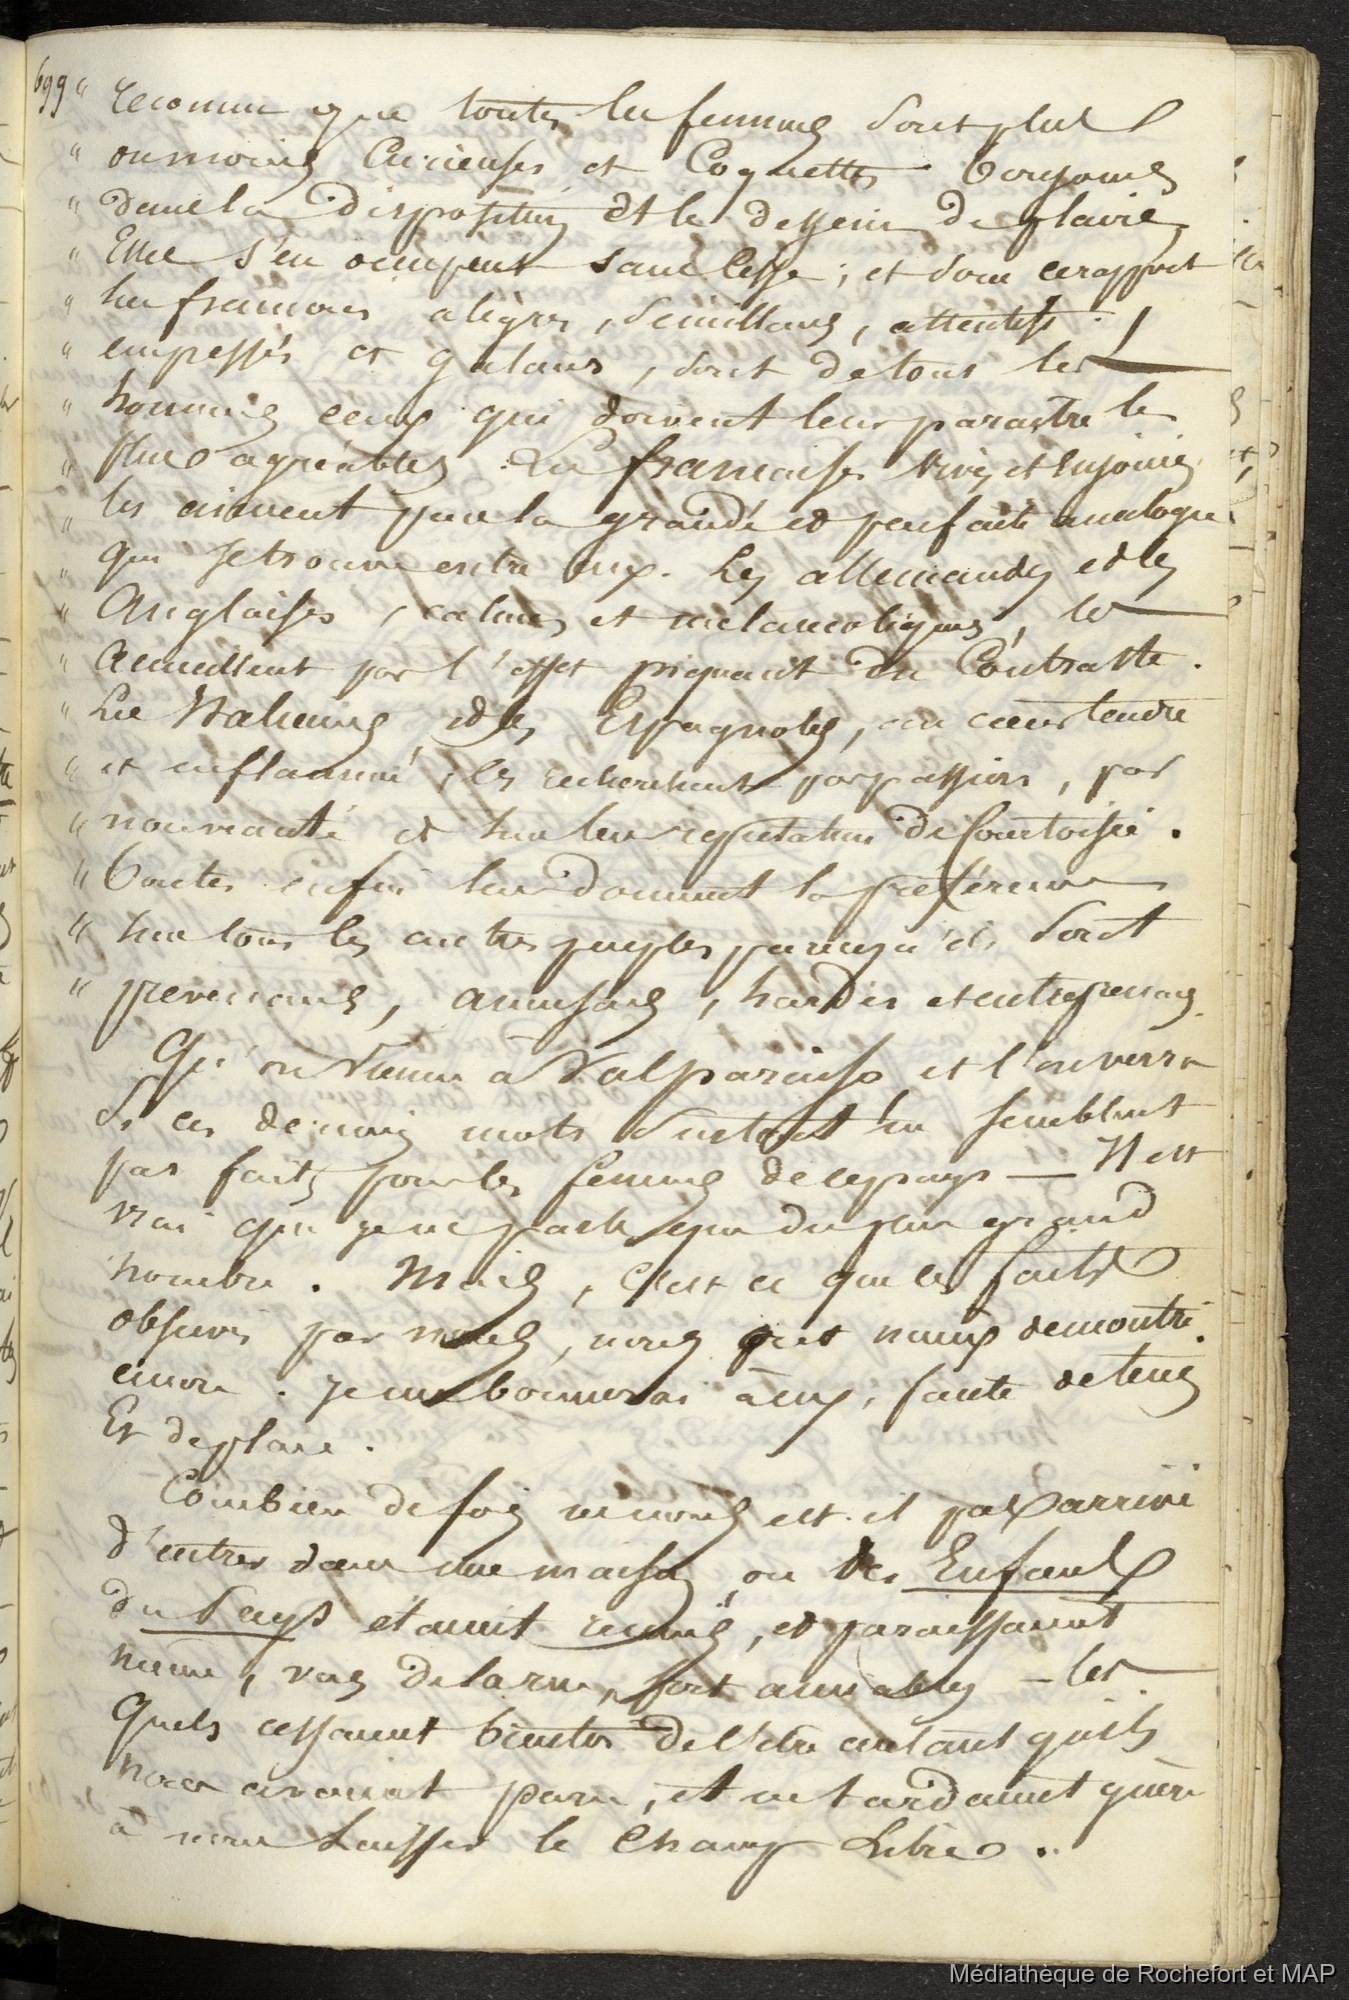 699
" reconnu que toutes les femmes sont plus
" ou moins curieuses et Coquettes. Toujours
" dans la disposition et le dessein de plaire,
" Elles s'en occupent sans cesse ; et sous ce rapport
" les francais alègres, semillans, attentifs
" empressés et galans, sont de tous les
" hommes ceux qui doivent leur paraitre le
" plus agréables. Les francaises vives et enjouées,
" les aiment par la grande et parfaite analogie
" qui se trouve entre eux. Les allemandes et les
" Anglaises, calmes et melancoliques, les
" accueillent par l'effet piquant du Contraste.
" Les Italiennes et les Espagnoles, au cœur tendre
" et enflammé, les recherchent par passion, par
" nouveauté et sur leur reputation de Courtoisie.
" Toutes enfin leur donnent la préférence
" sur tous les autres peuples, parcequ'ils sont
" prevenans, amusans, hardis et entreprenans.
Qu'on vienne à Valparaiso et l'on verra
si ces derniers mots surtout ne semblent
pas faits pour les femmes de ce pays — Il est
vrai que je ne parle que du plus grand
nombre. Mais, c'est ce que les faits
observés par nous, nous ont mieux demontré
encore. Je me bornerai à eux, faute de tems
Et de place.
Combien de fois ne nous est-il pas arrivé
d'entrer dans une maison, ou des Enfans
du Pays étaient reunis, et paraissaient
même, vus de la rue, fort aimables – les
quels cessaient bientôt de l'etre autant qu'ils
nous avaient paru, et ne tardaient guère
à nous Laisser le Champ Libre.
Médiathèque de Rochefort et MAP